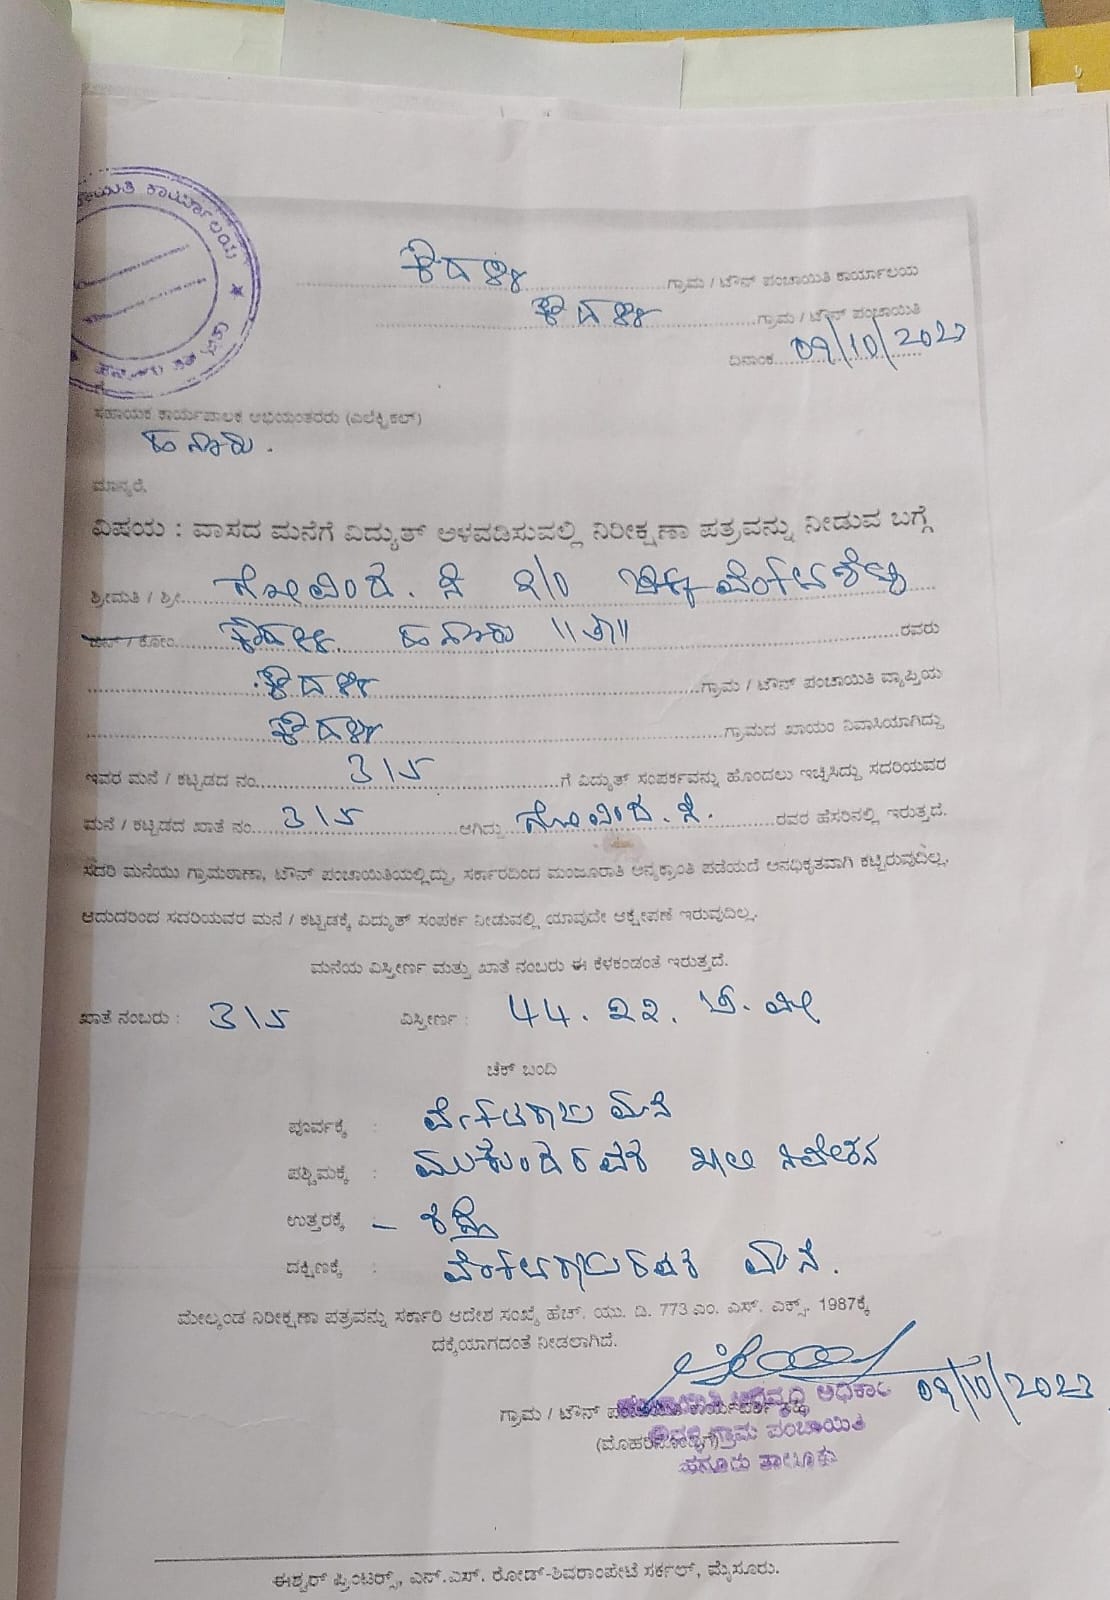 ಕಾರ್ಯಾಲಯ ★
ಕೌದಳ್ಳಿ ಗ್ರಾಮ / ಟೌನ್ ಪಂಚಾಯಿತಿ ಕಾರ್ಯಾಲಯ
ಕೌದಳ್ಳಿ ಗ್ರಾಮ / ಟೌನ್ ಪಂಚಾಯಿತಿ
ದಿನಾಂಕ 09/10/2023
ಸಹಾಯಕ ಕಾರ್ಯಪಾಲಕ ಅಭಿಯಂತರರು (ಎಲೆಕ್ಟ್ರಿಕಲ್)
ಹನೂರು.
ಮಾನ್ಯರೆ,
ವಿಷಯ : ವಾಸದ ಮನೆಗೆ ವಿದ್ಯುತ್ ಅಳವಡಿಸುವಲ್ಲಿ ನಿರೀಕ್ಷಣಾ ಪತ್ರವನ್ನು ನೀಡುವ ಬಗ್ಗೆ
ಶ್ರೀಮತಿ / ಶ್ರೀ ಗೋವಿಂದ. ಸಿ S/O ಚಿಕ್ಕವೆಂಕಟಶೆಟ್ಟಿ
ಬಿನ್ / ಕೋಂ ಕೌದಳ್ಳಿ ಹನೂರು ||ತಾ|| ರವರು
ಕೌದಳ್ಳಿ ಗ್ರಾಮ / ಟೌನ್ ಪಂಚಾಯಿತಿ ವ್ಯಾಪ್ತಿಯ
ಕೌದಳ್ಳಿ ಗ್ರಾಮದ ಖಾಯಂ ನಿವಾಸಿಯಾಗಿದ್ದು
ಇವರ ಮನೆ / ಕಟ್ಟಡದ ನಂ. 315 ಗೆ ವಿದ್ಯುತ್ ಸಂಪರ್ಕವನ್ನು ಹೊಂದಲು ಇಚ್ಛಿಸಿದ್ದು ಸದರಿಯವರ
ಮನೆ / ಕಟ್ಟಡದ ಖಾತೆ ನಂ. 315 ಆಗಿದ್ದು ಗೋವಿಂದ. ಸಿ. ರವರ ಹೆಸರಿನಲ್ಲಿ ಇರುತ್ತದೆ.
ಸದರಿ ಮನೆಯು ಗ್ರಾಮಠಾಣಾ, ಟೌನ್ ಪಂಚಾಯಿತಿಯಲ್ಲಿದ್ದು, ಸರ್ಕಾರದಿಂದ ಮಂಜೂರಾತಿ ಅನ್ಯಕ್ರಾಂತಿ ಪಡೆಯದೆ ಅನಧಿಕೃತವಾಗಿ ಕಟ್ಟಿರುವುದಿಲ್ಲ,
ಆದುದರಿಂದ ಸದರಿಯವರ ಮನೆ / ಕಟ್ಟಡಕ್ಕೆ ವಿದ್ಯುತ್ ಸಂಪರ್ಕ ನೀಡುವಲ್ಲಿ ಯಾವುದೇ ಆಕ್ಷೇಪಣೆ ಇರುವುದಿಲ್ಲ.
ಮನೆಯ ವಿಸ್ತೀರ್ಣ ಮತ್ತು ಖಾತೆ ನಂಬರು ಈ ಕೆಳಕಂಡಂತೆ ಇರುತ್ತದೆ.
ಖಾತೆ ನಂಬರು : 315 ವಿಸ್ತೀರ್ಣ : 44.22. ಚ. ಮೀ
ಚೆಕ್ ಬಂದಿ
ಪೂರ್ವಕ್ಕೆ : ವೆಂಕಟರಾಜು ಮನೆ
ಪಶ್ಚಿಮಕ್ಕೆ : ಮುಕುಂದರವರ ಖಾಲಿ ನಿವೇಶನ
ಉತ್ತರಕ್ಕೆ – ರಸ್ತೆ
ದಕ್ಷಿಣಕ್ಕೆ : ವೆಂಕಟರಾಜುರವರ ಮನೆ.
ಮೇಲ್ಕಂಡ ನಿರೀಕ್ಷಣಾ ಪತ್ರವನ್ನು ಸರ್ಕಾರಿ ಆದೇಶ ಸಂಖ್ಯೆ ಹೆಚ್. ಯು. ಡಿ. 773 ಎಂ. ಎಸ್. ಎಕ್ಸ್. 1987ಕ್ಕೆ
ದಕ್ಕೆಯಾಗದಂತೆ ನೀಡಲಾಗಿದೆ.
09/10/2023
ಅಭಿವೃದ್ಧಿ ಅಧಿಕಾರಿ
ಗ್ರಾಮ / ಟೌನ್ ಪಂಚಾಯಿತಿ ಕಾರ್ಯದರ್ಶಿ ಸಹಿ
ಗ್ರಾಮ ಪಂಚಾಯಿತಿ
(ಮೊಹರಿನೊಂದಿಗೆ)
ಹನೂರು ತಾಲೂಕು
ಈಶ್ವರ್ ಪ್ರಿಂಟರ್ಸ್, ಎನ್.ಎಸ್. ರೋಡ್-ಶಿವರಾಂಪೇಟೆ ಸರ್ಕಲ್, ಮೈಸೂರು.